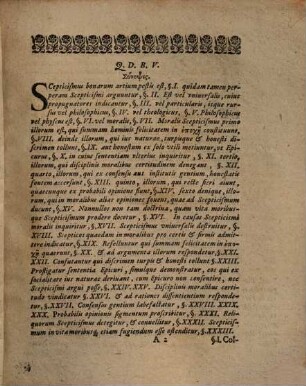 Q. D. B. V.
Σύνοψις.
SCepticismus bonarum artium pestis est, §. I. quidam tamen perperam
Scepticismi arguuntur, §. II. Est vel universalis, cuius
propugnatores indicantur, §. III. vel particularis, isque rursus
vel philosophicus, §. IV. vel theologicus, §. V. Philosophicus
vel physicus est, §. VI. vel moralis, §. VII. Morali Scepticismo primo
illorum est, qui summam hominis felicitatem in ἐποχῇ constituunt,
§. VIII. deinde illorum, qui jus naturae, turpique & honesti discrimen
tollunt, §. IX. aut honestum ex sola utili metiuntur, ut Epicurus,
§. X. in cuius sententiam ulterius inquiritur, §. XI. tertio,
illorum, qui disciplinis moralibus certitudinem denegant, §. XII.
quarto, illorum, qui ex consensu aut instituto gentium, honestatis
fontem arcessunt, §. XIII. quinto, illorum, qui recte fieri aiunt,
quaecunque ex probabili opinione fiunt, §. XIV. sexto denique, illorum,
qui in moralibus aliae opiniones fovent, quae ad Scepticismum
ducunt, §. XV. Nonnulles non tam doctrina, quam vita moribusque
Scepticismum prodere docetur, §. XVI. In causas Scepticismi
moralis inquiritur, §. XVII. Scepticismus universalis destruitur, §.
XVIII. Scepticos quaedam in moralibus pro certis & firmis admittere
indicatur, §. XIX. Refelluntur qui summam felicitatem in ἐποχῇ
quaerunt, §. XX. & ad argumenta illorum respondetur, §. XXI.
XXII. Confutantur qui discrimen turpis & honesti tollunt §. XXIII.
Profligatur sententia Epicuri, simulque demonstratur, eos qui ex
socialitate ius naturae derivant, cum Epicuro non consentire, nec
Scepticismi argui posse, §. XXIV. XXV. Disciplinis moralibus certitudo
vindicatur §. XXVI. & ad rationes dissentientium respondetur,
§. XXVII. Consensus gentium labefactatur, §. XXVIII. XXIX.
XXX. Probabilis opinionis figmentum proscribitur, §. XXXI. Reliquorum
Scepticismus detegitur, & convellitur, §. XXXII. Scepticismum
in vita moribusque etiam fugiendum esse ostenditur, §. XXXIII.
A 2 §. I. Col-